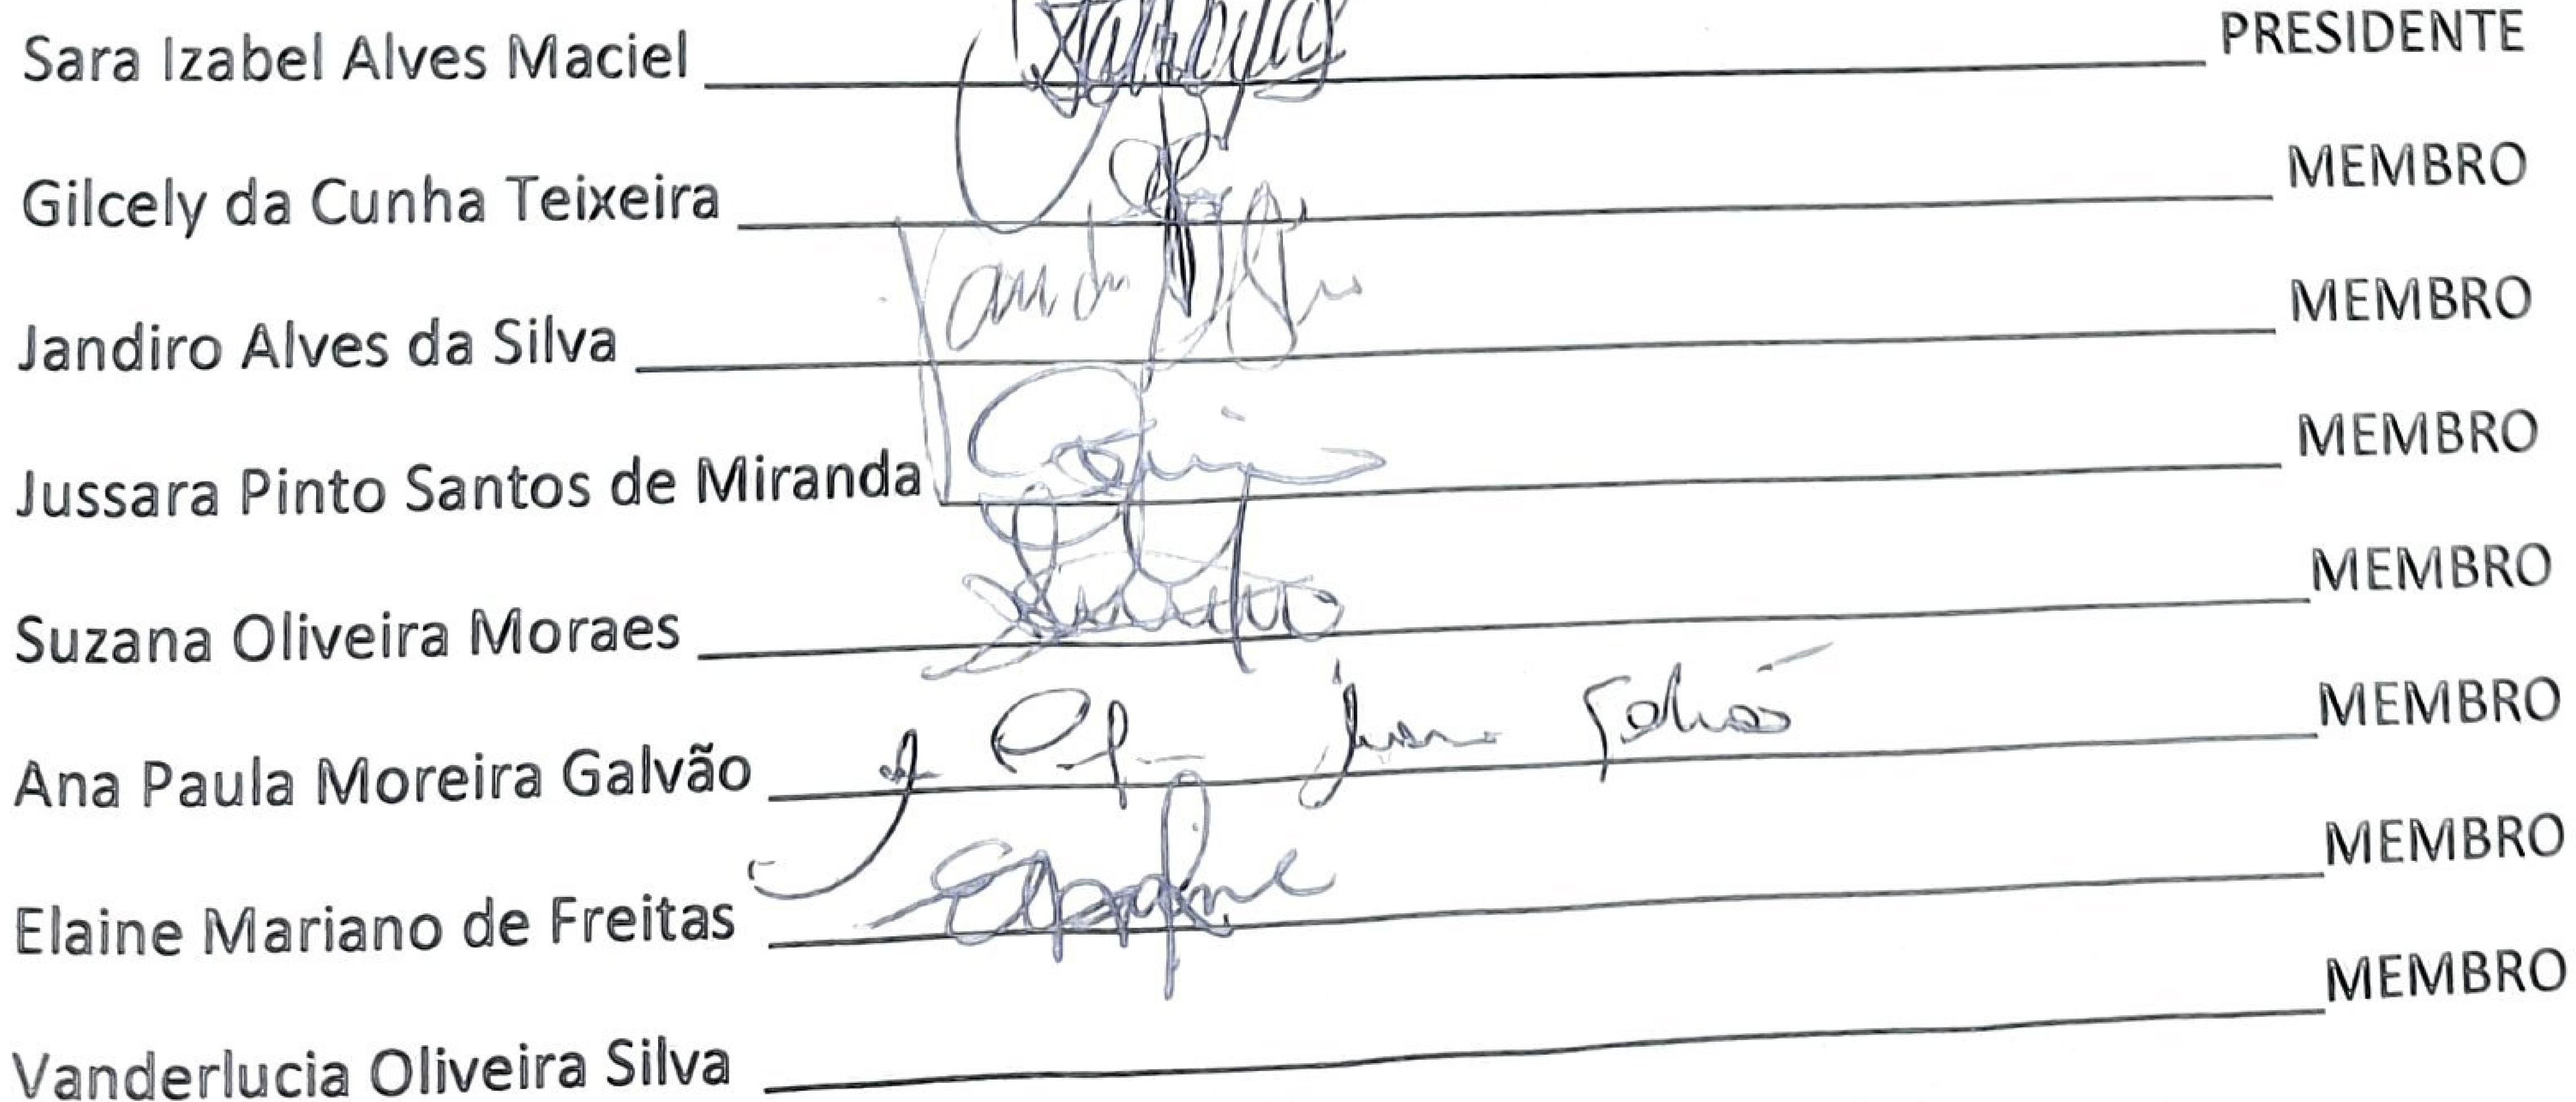 Sara Izabel Alves Maciel PRESIDENTE
Gilcely da Cunha Teixeira MEMBRO
Jandiro Alves da Silva MEMBRO
Jussara Pinto Santos de Miranda MEMBRO
Suzana Oliveira Moraes MEMBRO
Ana Paula Moreira Galvão MEMBRO
Elaine Mariano de Freitas MEMBRO
Vanderlucia Oliveira Silva MEMBRO